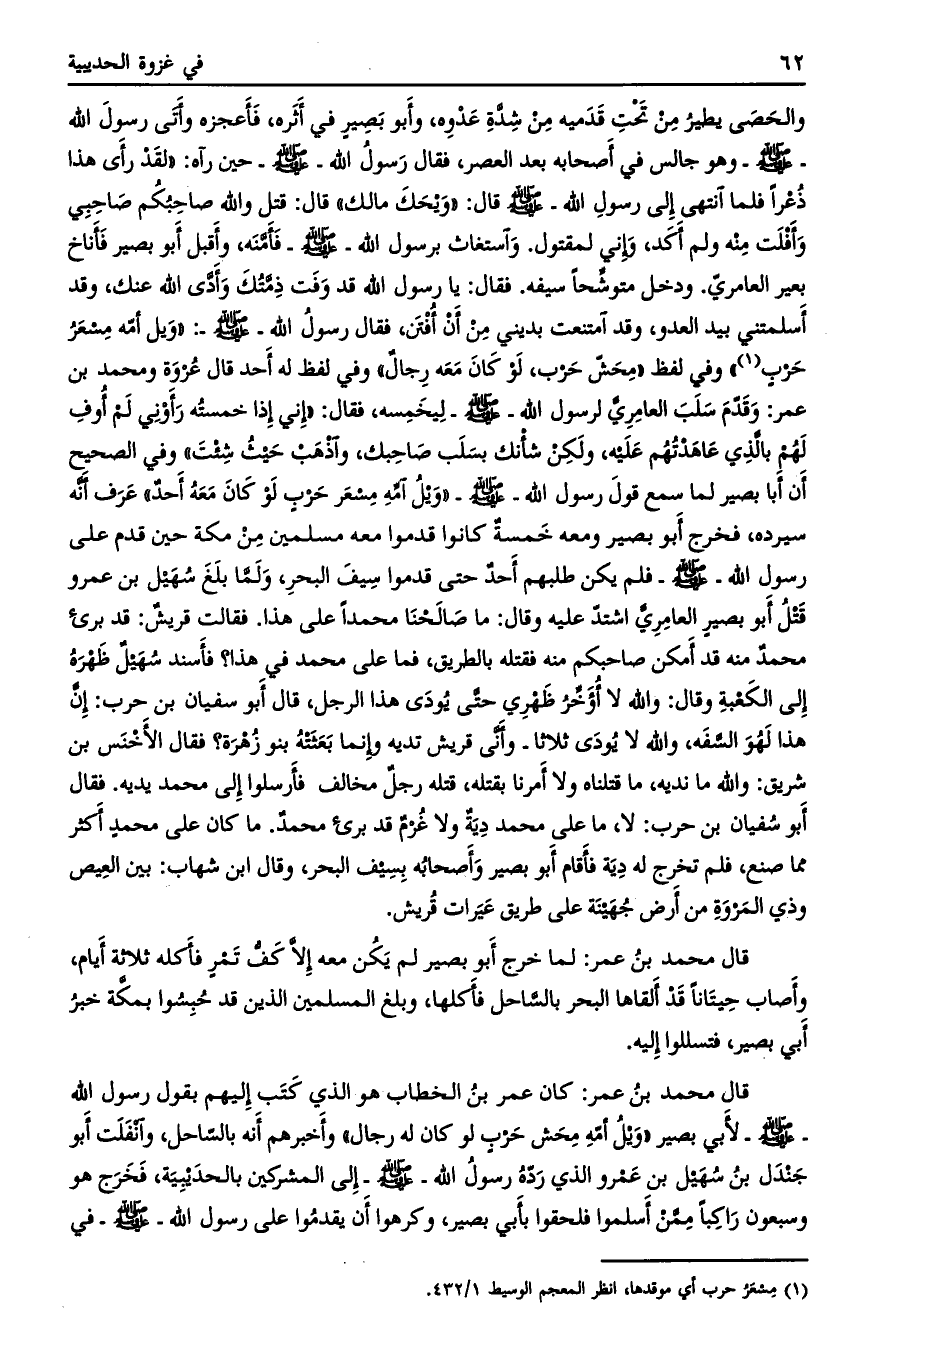 ٦٢ في غزوة الحديبية
والحَصَى يطيرُ مِنْ تَحْتِ قَدَميه مِنْ شِدَّةِ عَدْوِه، وأَبو بَصِيرٍ في أَثَره، فَأَعجزه وأَتَى رسولَ الله
ـ ﷺ ـ وهو جالس في أَصحابه بعد العصر، فقال رَسولُ الله ـ ﷺ ـ حين رآه: «لقَدْ رأَى هذا
ذُعْراً فلما ٱنتهى إِلى رسولِ الله ـ ﷺ قال: «وَيْحَكَ مالك» قال: قتل والله صاحِبُكم صَاحِبِي
وَأَفْلَت مِنْه ولم أَكَد، وَإِني لمقتول. وَٱستغاث برسول الله ـ ﷺ ـ فَأَمَّنَه، وأَقبل أَبو بصير فَأَناخ
بعير العامريّ. ودخل متوشِّحاً سيفه. فقال: يا رسول الله قد وَفَت ذِمَّتُكَ وَأَدَّى الله عنك، وقد
أَسلمتني بيد العدو، وقد ٱمتنعت بديني مِنْ أَنْ أُفْتَن، فقال رسولُ الله ـ ﷺ ـ: «وَيل أمّه مِسْعَرُ
حَرْبٍ(١)» وفي لفظ «مِحَشّ حَرْب، لَوْ كَانَ مَعَه رِجالٌ» وفي لفظ له أَحد قال عُرْوَة ومحمد بن
عمر: وَقَدَّمَ سَلَبَ العامِرِيِّ لرسول الله ـ ﷺ ـ لِيخَمِسه، فقال: «إِني إِذا خمستُه رَأَوْنِي لَمْ أُوفِ
لَهُمْ بالَّذِي عَاهَدْتُهُم عَلَيْه، ولَكِنْ شأْنك بسَلَب صَاحِبِك، وٱذْهَبْ حَيْثُ شِئْتَ» وفي الصحيح
أَن أَبا بصير لما سمع قولَ رسول الله ـ ﷺ ـ «وَيْلُ ٱمِّهِ مِسْعَر حَرْبٍ لَوْ كَانَ مَعَهُ أَحدٌ» عَرَف أَنَّه
سيرده، فخرج أَبو بصير ومعه خَمسةٌ كانوا قدموا معه مسلمين مِنْ مكة حين قدم على
رسول الله ـ ﷺ ـ فلم يكن طلبهم أَحدٌ حتى قدموا سِيفَ البحرِ، وَلَمَّا بلَغَ سُهَيْل بن عمرو
قَتْلُ أَبو بصيرٍ العامِرِيَّ اشتدّ عليه وقال: ما صَالَحْنَا محمداً على هذا. فقالت قريشٌ: قد برئ
محمدٌ منه قد أَمكن صاحبكم منه فقتله بالطريق، فما على محمد في هذا؟ فأَسند سُهَيْلٌ ظَهْرَهُ
إِلى الكَعْبةِ وقال: والله لا أُؤَخِّرُ ظَهْرِي حتَّى يُودَى هذا الرجل، قال أَبو سفيان بن حرب: إِنَّ
هذا لَهُوَ السَّفَه، والله لا يُودَى ثلاثا ـ وأَنَّى قريش تديه وإِنما بَعَثَتْهُ بنو زُهْرَة؟ فقال الأَخْنَس بن
شريق: والله ما نديه، ما قتلناه ولا أَمرنا بقتله، قتله رجلٌ مخالف فأَرسلوا إِلى محمد يديه. فقال
أَبو سُفيان بن حرب: لا، ما على محمد دِيَةٌ ولا غُرْمٌ قد برئ محمدٌ. ما كان على محمدٍ أَكثر
مما صنع، فلم تخرج له دِيَة فأَقام أَبو بصير وَأَصحابُه بِسِيْف البحر، وقال ابن شهاب: بين العِيص
وذي المَرْوَةِ من أَرض جُهَيْنَة على طريق عَيَرات قُريش.
قال محمد بنُ عمر: لما خرج أَبو بصير لم يَكُن معه إِلاَّ كَفُّ تَمْرٍ فأَكله ثلاثة أَيام،
وأَصاب حِيتَاناً قَدْ أَلقاها البحر بالسَّاحل فأَكلها، وبلغ المسلمين الذين قد حُبِسُوا بمكَّة خبرُ
أَبي بصير، فتسللوا إِليه.
قال محمد بنُ عمر: كان عمر بنُ الخطاب هو الذي كَتَب إِليهم بقول رسول الله
ـ ﷺ ـ لأَبي بصير «وَيْلُ أمّهِ مِحَش حَرْبٍ لو كان له رجال» وأَخبرهم أَنه بالسَّاحل، وٱنْفَلَت أَبو
جَنْدَل بنُ سُهَيْل بن عَمْرو الذي رَدّهُ رسولُ الله ـ ﷺ ـ إِلى المشركين بالحدَيْبِيَة، فَخَرَج هو
وسبعون رَاكِباً مِمَّنْ أَسلموا فلحقوا بأَبي بصير، وكرهوا أَن يقدمُوا على رسول الله ـ ﷺ ـ في
(١) مِسْعَرُ حرب أي موقدها، انظر المعجم الوسيط ١/ ٤٣٢.